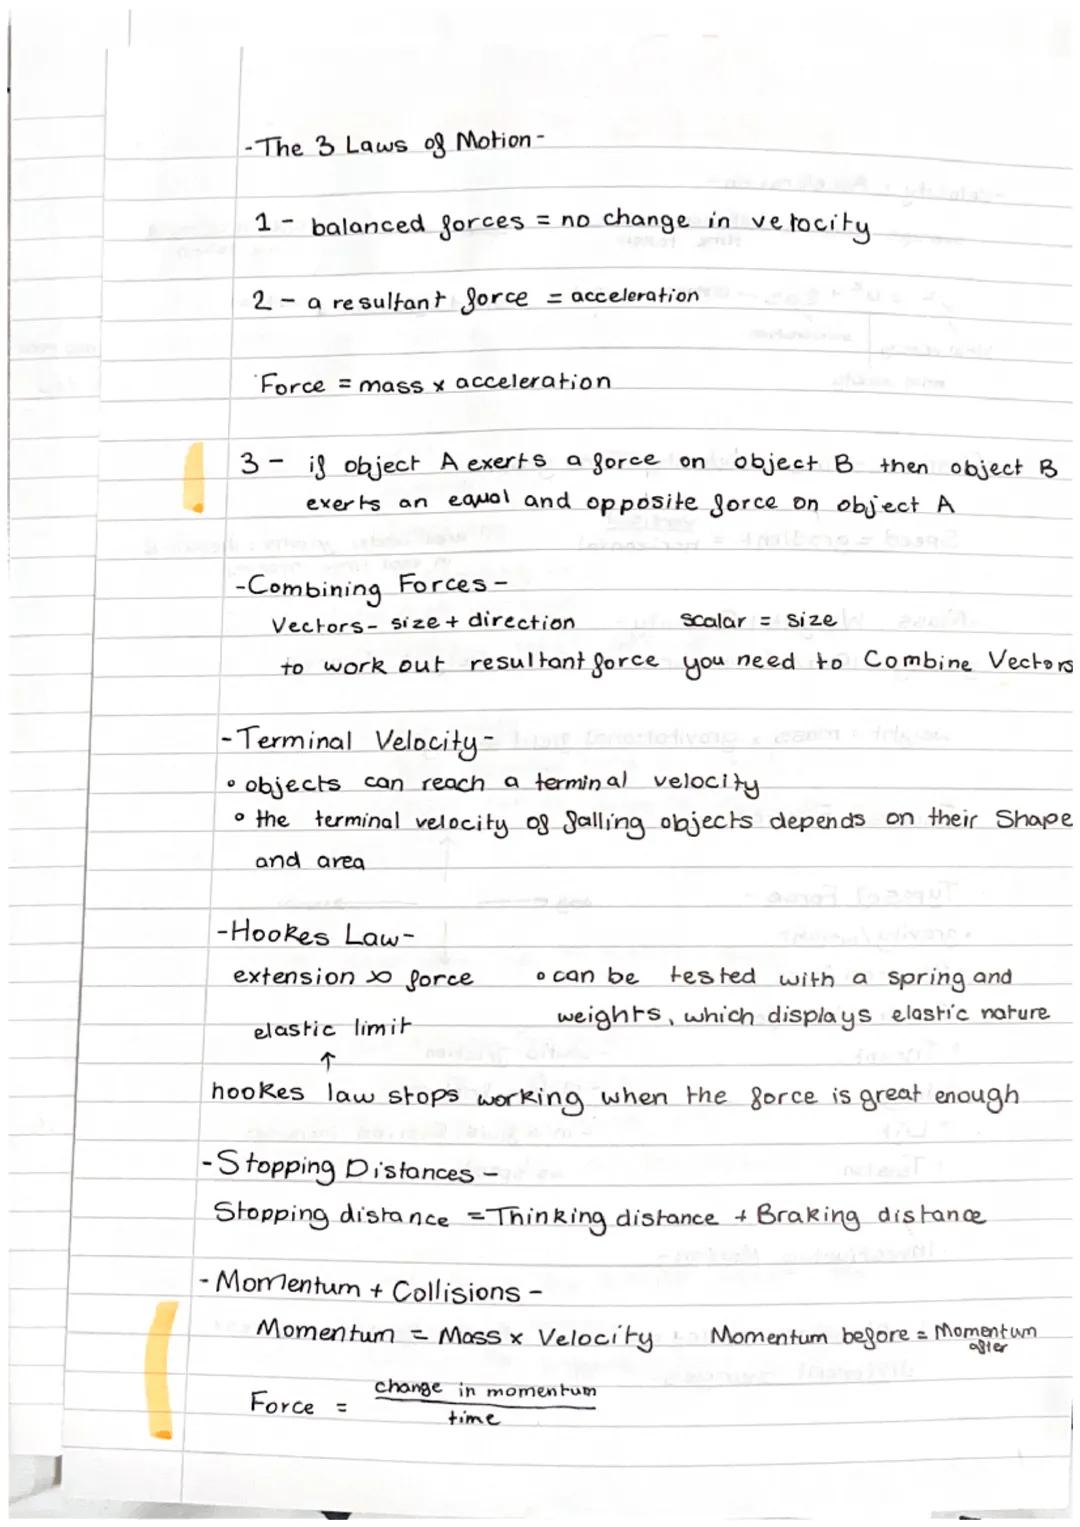 -The 3 Laws of Motion-
1 - balanced forces = no change in velocity
2 - a resultant force = acceleration
Force = mass x acceleration
3 - if object A exerts a force on object B then object B
exerts an equal and opposite force on object A
-Combining Forces-
Vectors - size + direction scalar = size
to work out resultant force you need to Combine Vectors
-Terminal Velocity-
• objects can reach a terminal velocity
• the terminal velocity of falling objects depends on their Shape
and area
-Hookes Law-
extension ∝ force • can be tested with a spring and
weights, which displays elastic nature
elastic limit
↑
hookes law stops working when the force is great enough
-Stopping Distances-
Stopping distance = Thinking distance + Braking distance
-Momentum + Collisions-
Momentum = Mass x Velocity Momentum before = Momentum
after
Force = change in momentum
time